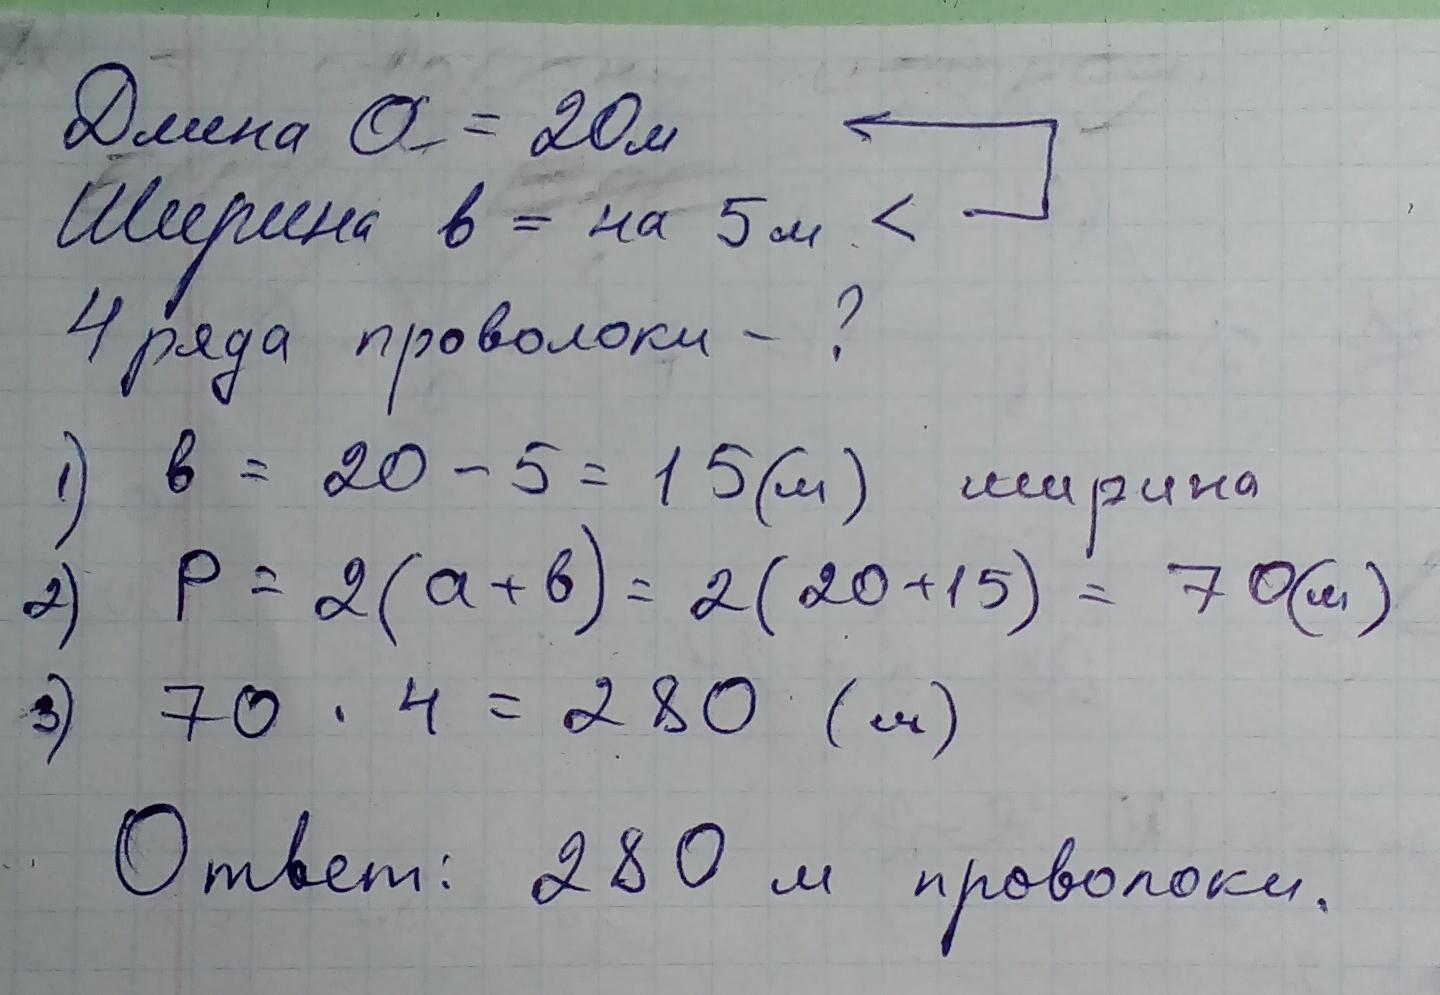 Длина a = 20м
Ширина в = на 5м <
4 ряда проволоки - ?
1) в = 20 - 5 = 15(м) ширина
2) P = 2(a+в) = 2(20+15) = 70(м)
3) 70 · 4 = 280 (м)
Ответ: 280 м проволоки.